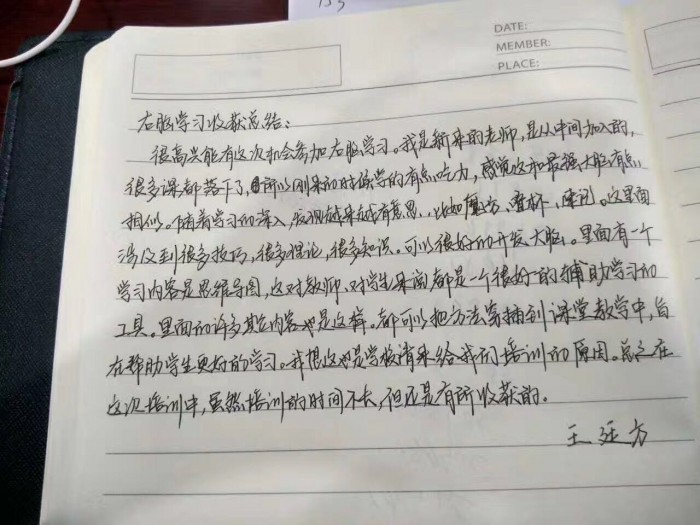 153
DATE:
MEMBER:
PLACE:
右脑学习收获总结：
很高兴能有这次机会参加右脑学习。我是新来的老师，是从中间加入的，
很多课都落下了，所以刚来的时候学的有点吃力，感觉这和最强大脑有点
相似。随着学习的深入，发现越来越有意思，比如魔方、叠杯、速记。这里面
涉及到很多技巧，很多理论，很多知识。可以很好的开发大脑。里面有一个
学习内容是思维导图，这对教师、对学生来说都是一个很好的辅助学习的
工具。里面的许多其它内容也是这样。都可以把方法穿插到课堂教学中，旨
在帮助学生更好的学习。我想这也是学校请来给我们培训的原因。总之在
这次培训中，虽然培训的时间不长，但还是有所收获的。
王廷方